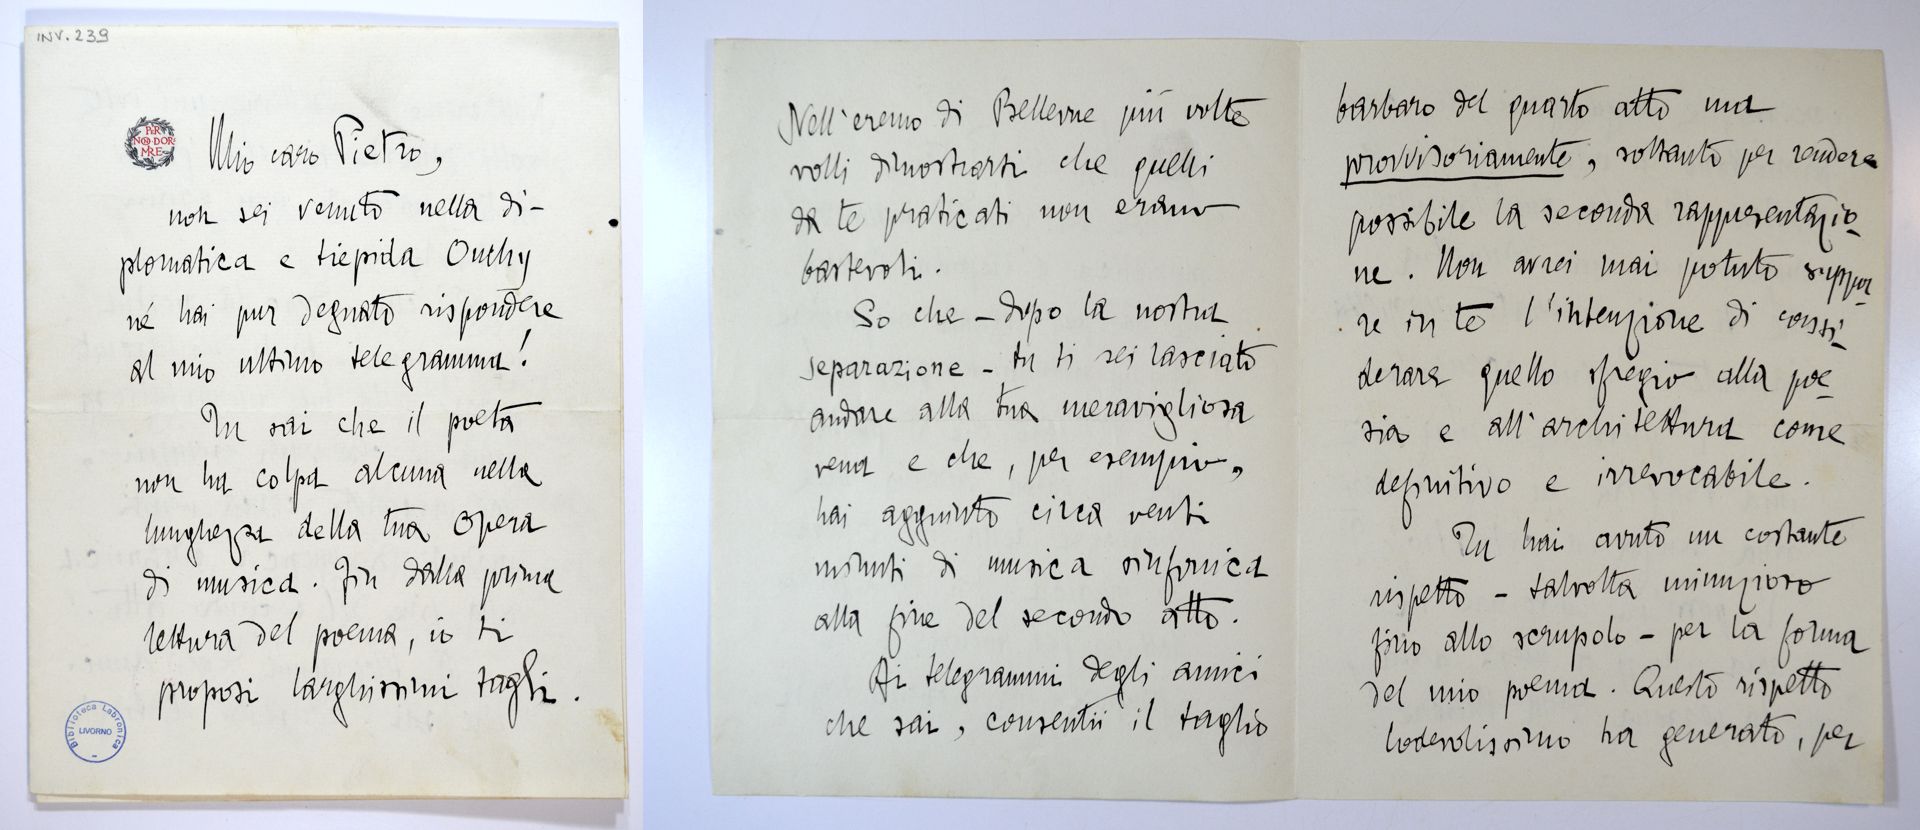 INV. 239
PER
NON DOR-
MIRE
Mio caro Pietro,
non sei venuto nella di-
plomatica e tiepida Ouchy
né hai pur degnato rispondere
al mio ultimo telegramma!
Tu sai che il poeta
non ha colpa alcuna nella
lunghezza della tua Opera
di musica. Fin dalla prima
lettura del poema, io ti
proposi larghissimi tagli.
Biblioteca Labronica
LIVORNO
Nell'eremo di Bellevue più volte
volli dimostrarti che quelli
da te praticati non erano
bastevoli.
So che – dopo la nostra
separazione – tu ti sei lasciato
andare alla tua meravigliosa
vena e che, per esempio,
hai aggiunto circa venti
minuti di musica sinfonica
alla fine del secondo atto.
Ai telegrammi degli amici
che sai, consentii il taglio
barbaro del quarto atto ma
provvisoriamente, soltanto per rendere
possibile la seconda rappresentazio-
ne. Non avrei mai potuto suppor-
re in te l'intenzione di consi-
derare quello sfregio alla poe-
sia e all'architettura come
definitivo e irrevocabile.
Tu hai avuto un costante
rispetto – talvolta minuzioso
fino allo scrupolo – per la forma
del mio poema. Questo rispetto
lodevolissimo ha generato, per